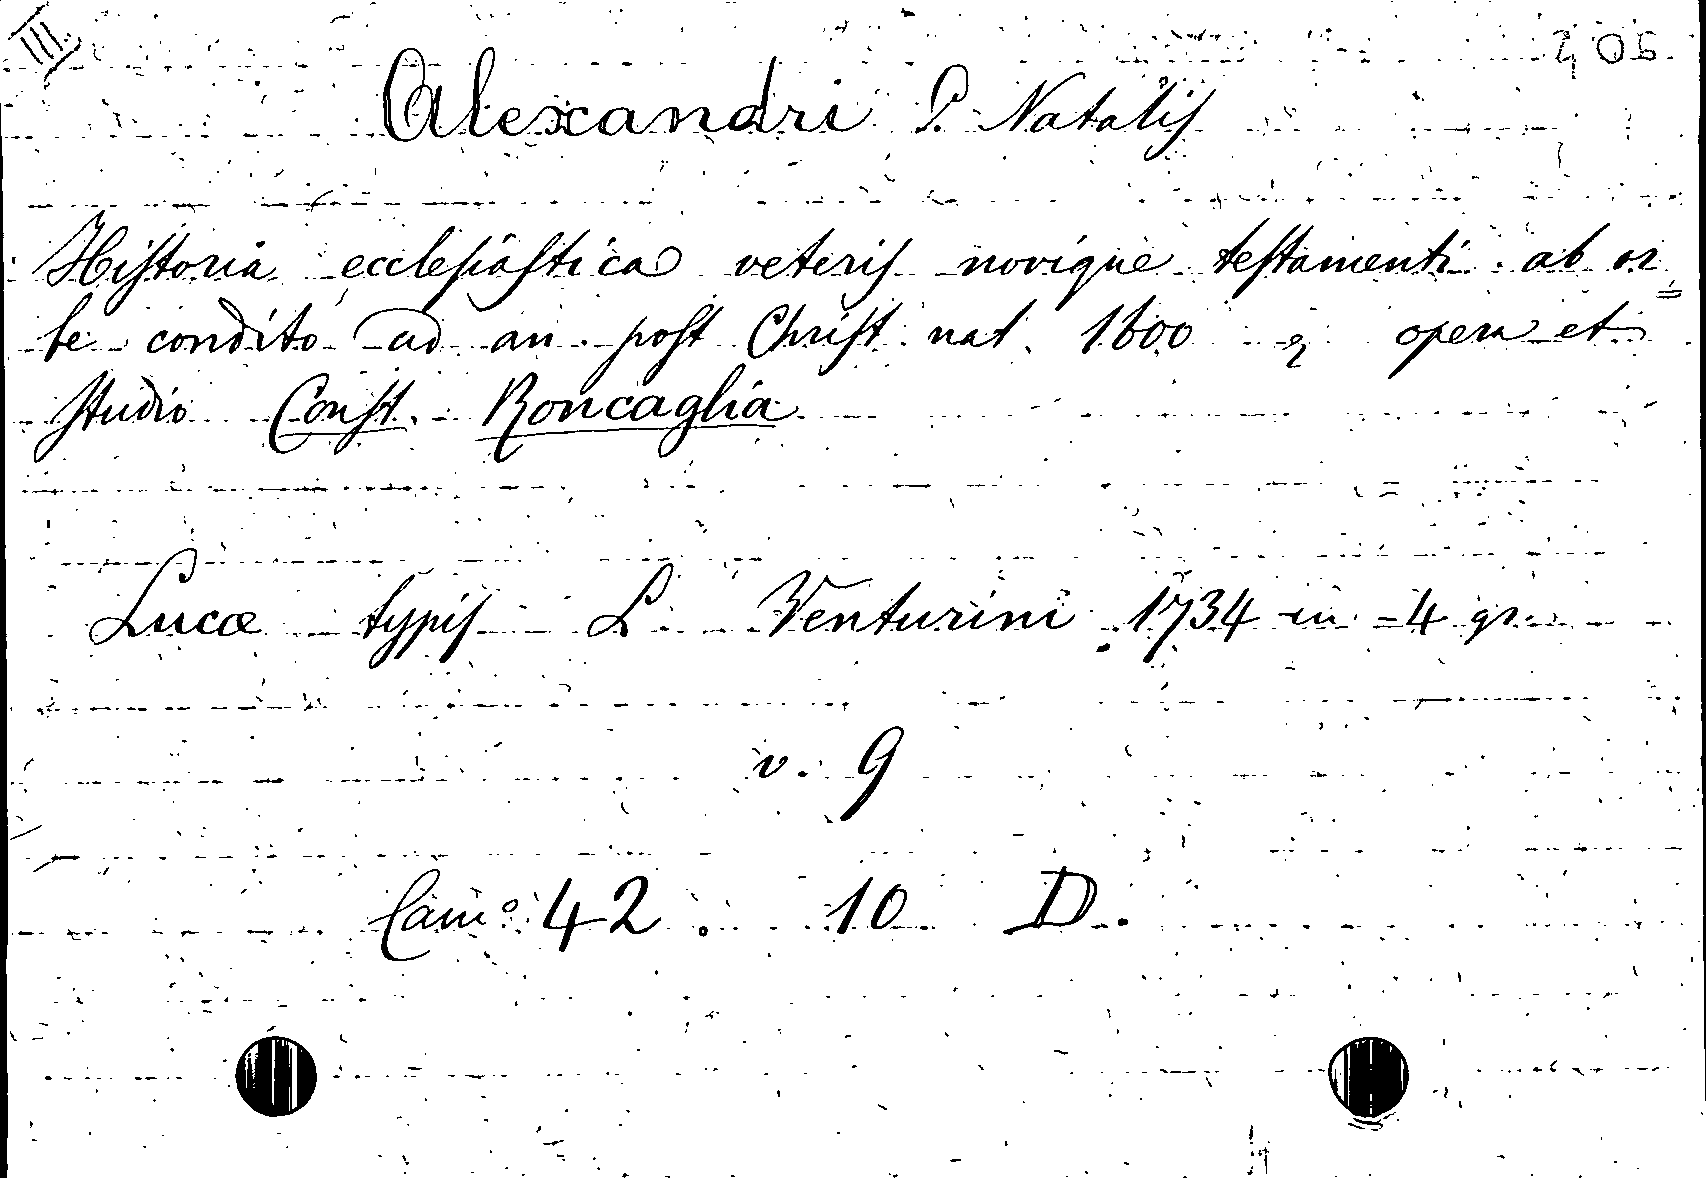 III.
Alexandri P. Natalis
Historia ecclesiastica veteris novique testamenti ab or=
be condito ad an. post Christ. nat. 1600 & opera et
studio Const. Roncaglia
Lucæ typis L. Venturini 1734 in 4 gr.
v. 9
Camº 42. 10 D.